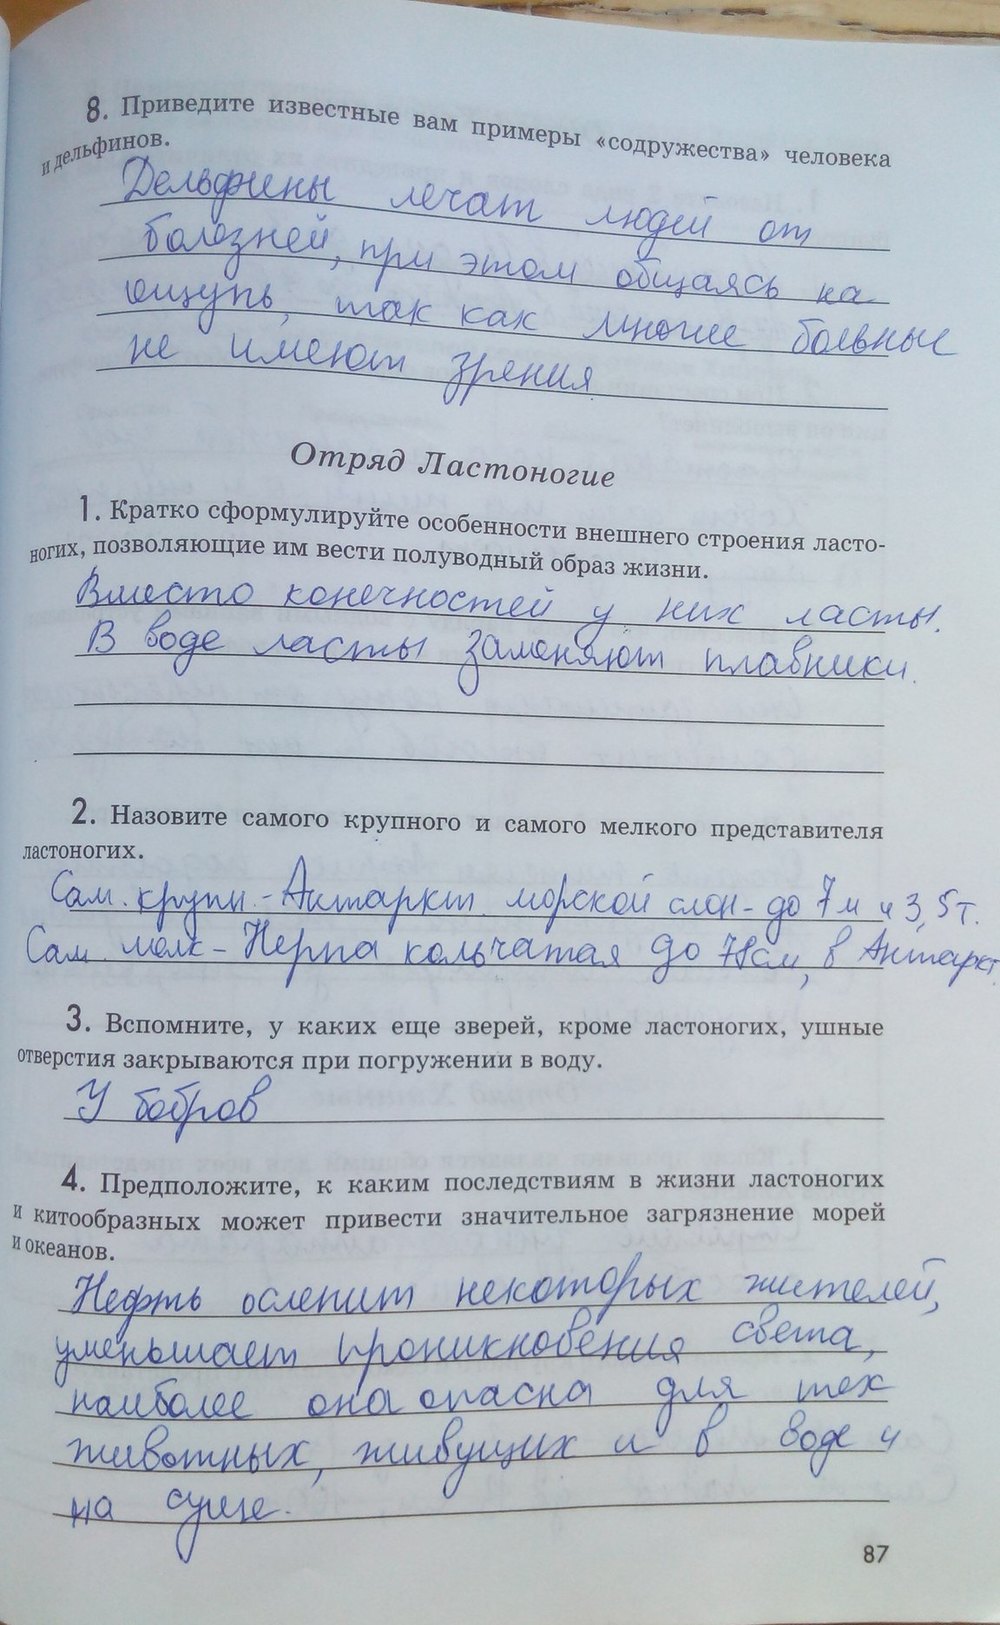 8. Приведите известные вам примеры «содружества» человека
и дельфинов.
Дельфины лечат людей от
болезней, при этом общаясь на
ощупь, так как многие больные
не имеют зрения
Отряд Ластоногие
1. Кратко сформулируйте особенности внешнего строения ласто-
ногих, позволяющие им вести полуводный образ жизни.
Вместо конечностей у них ласты.
В воде ласты заменяют плавники.
2. Назовите самого крупного и самого мелкого представителя
ластоногих.
Сам. крупн. - Антаркт. морской слон - до 7 м и 3,5 т.
Сам. мелк - Нерпа кольчатая до см, в Антаркт
3. Вспомните, у каких еще зверей, кроме ластоногих, ушные
отверстия закрываются при погружении в воду.
У бобров
4. Предположите, к каким последствиям в жизни ластоногих
и китообразных может привести значительное загрязнение морей
и океанов.
Нефть ослепит некоторых жителей,
уменьшает проникновения света,
наиболее она опасна для тех
животных, живущих и в воде и
на суше.
87